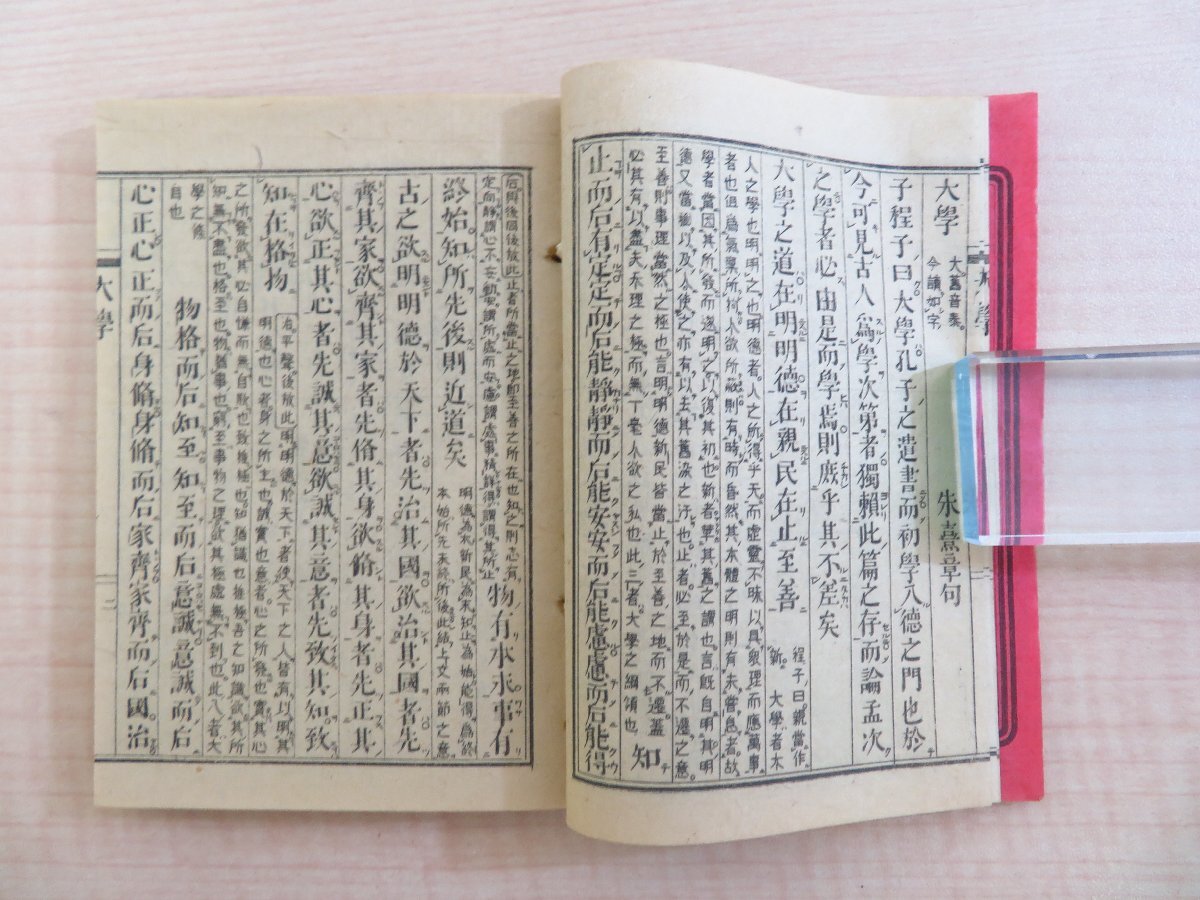 大學 大舊音泰。今讀如字 朱熹章句
子程子曰大學孔子之遺書而初學入德之門也於
今可見古人爲學次第者獨賴此篇之存而論孟次
之學者必由是而學焉則庶乎其不差矣
大學之道在明明德在親民在止至善 程子曰。親當作新。大學者大
人之學也明明之也明德者。人之所得乎天。而虛靈不昧以具衆理而應萬事
者也但爲氣稟所拘人欲所蔽則有時而昏然其本體之明則有未嘗息者。故
學者當因其所發而遂明之以復其初也新者革其舊之謂也言既自明其明
德又當推以及人使之亦有以去其舊染之汙也止者。必至於是而不遷之意
至善則事理當然之極也言明明德新民皆當止於至善之地而不遷蓋
必其有以盡夫天理之極而無一毫人欲之私也此三者大學之綱領也 知
止而后有定定而后能靜靜而后能安安而后能慮慮而后能得
后與後同後放此止者所當止之地即至善之所在也知之則志有
定向靜謂心不妄動安謂所處而安慮謂處事精詳得謂得其所止 物有本末事有
終始知所先後則近道矣 明德為本新民為末知止為始能得為終
本始所先末終所後此結上文兩節之意
古之欲明明德於天下者先治其國欲治其國者先
齊其家欲齊其家者先脩其身欲脩其身者先正其
心欲正其心者先誠其意欲誠其意者先致其知致
知在格物 治平聲後放此明明德於天下者使天下之人皆有以明其
明德也心者身之所主也誠實也意者心之所發也實其心
之所發欲其必自慊而無自欺也致推極也知猶識也推極吾之知識欲其所
知無不盡也格至也物猶事也窮至事物之理欲其極處無不到也此八者大
學之條目也 物格而后知至知至而后意誠意誠而后
心正心正而后身脩身脩而后家齊家齊而后國治
大學
二